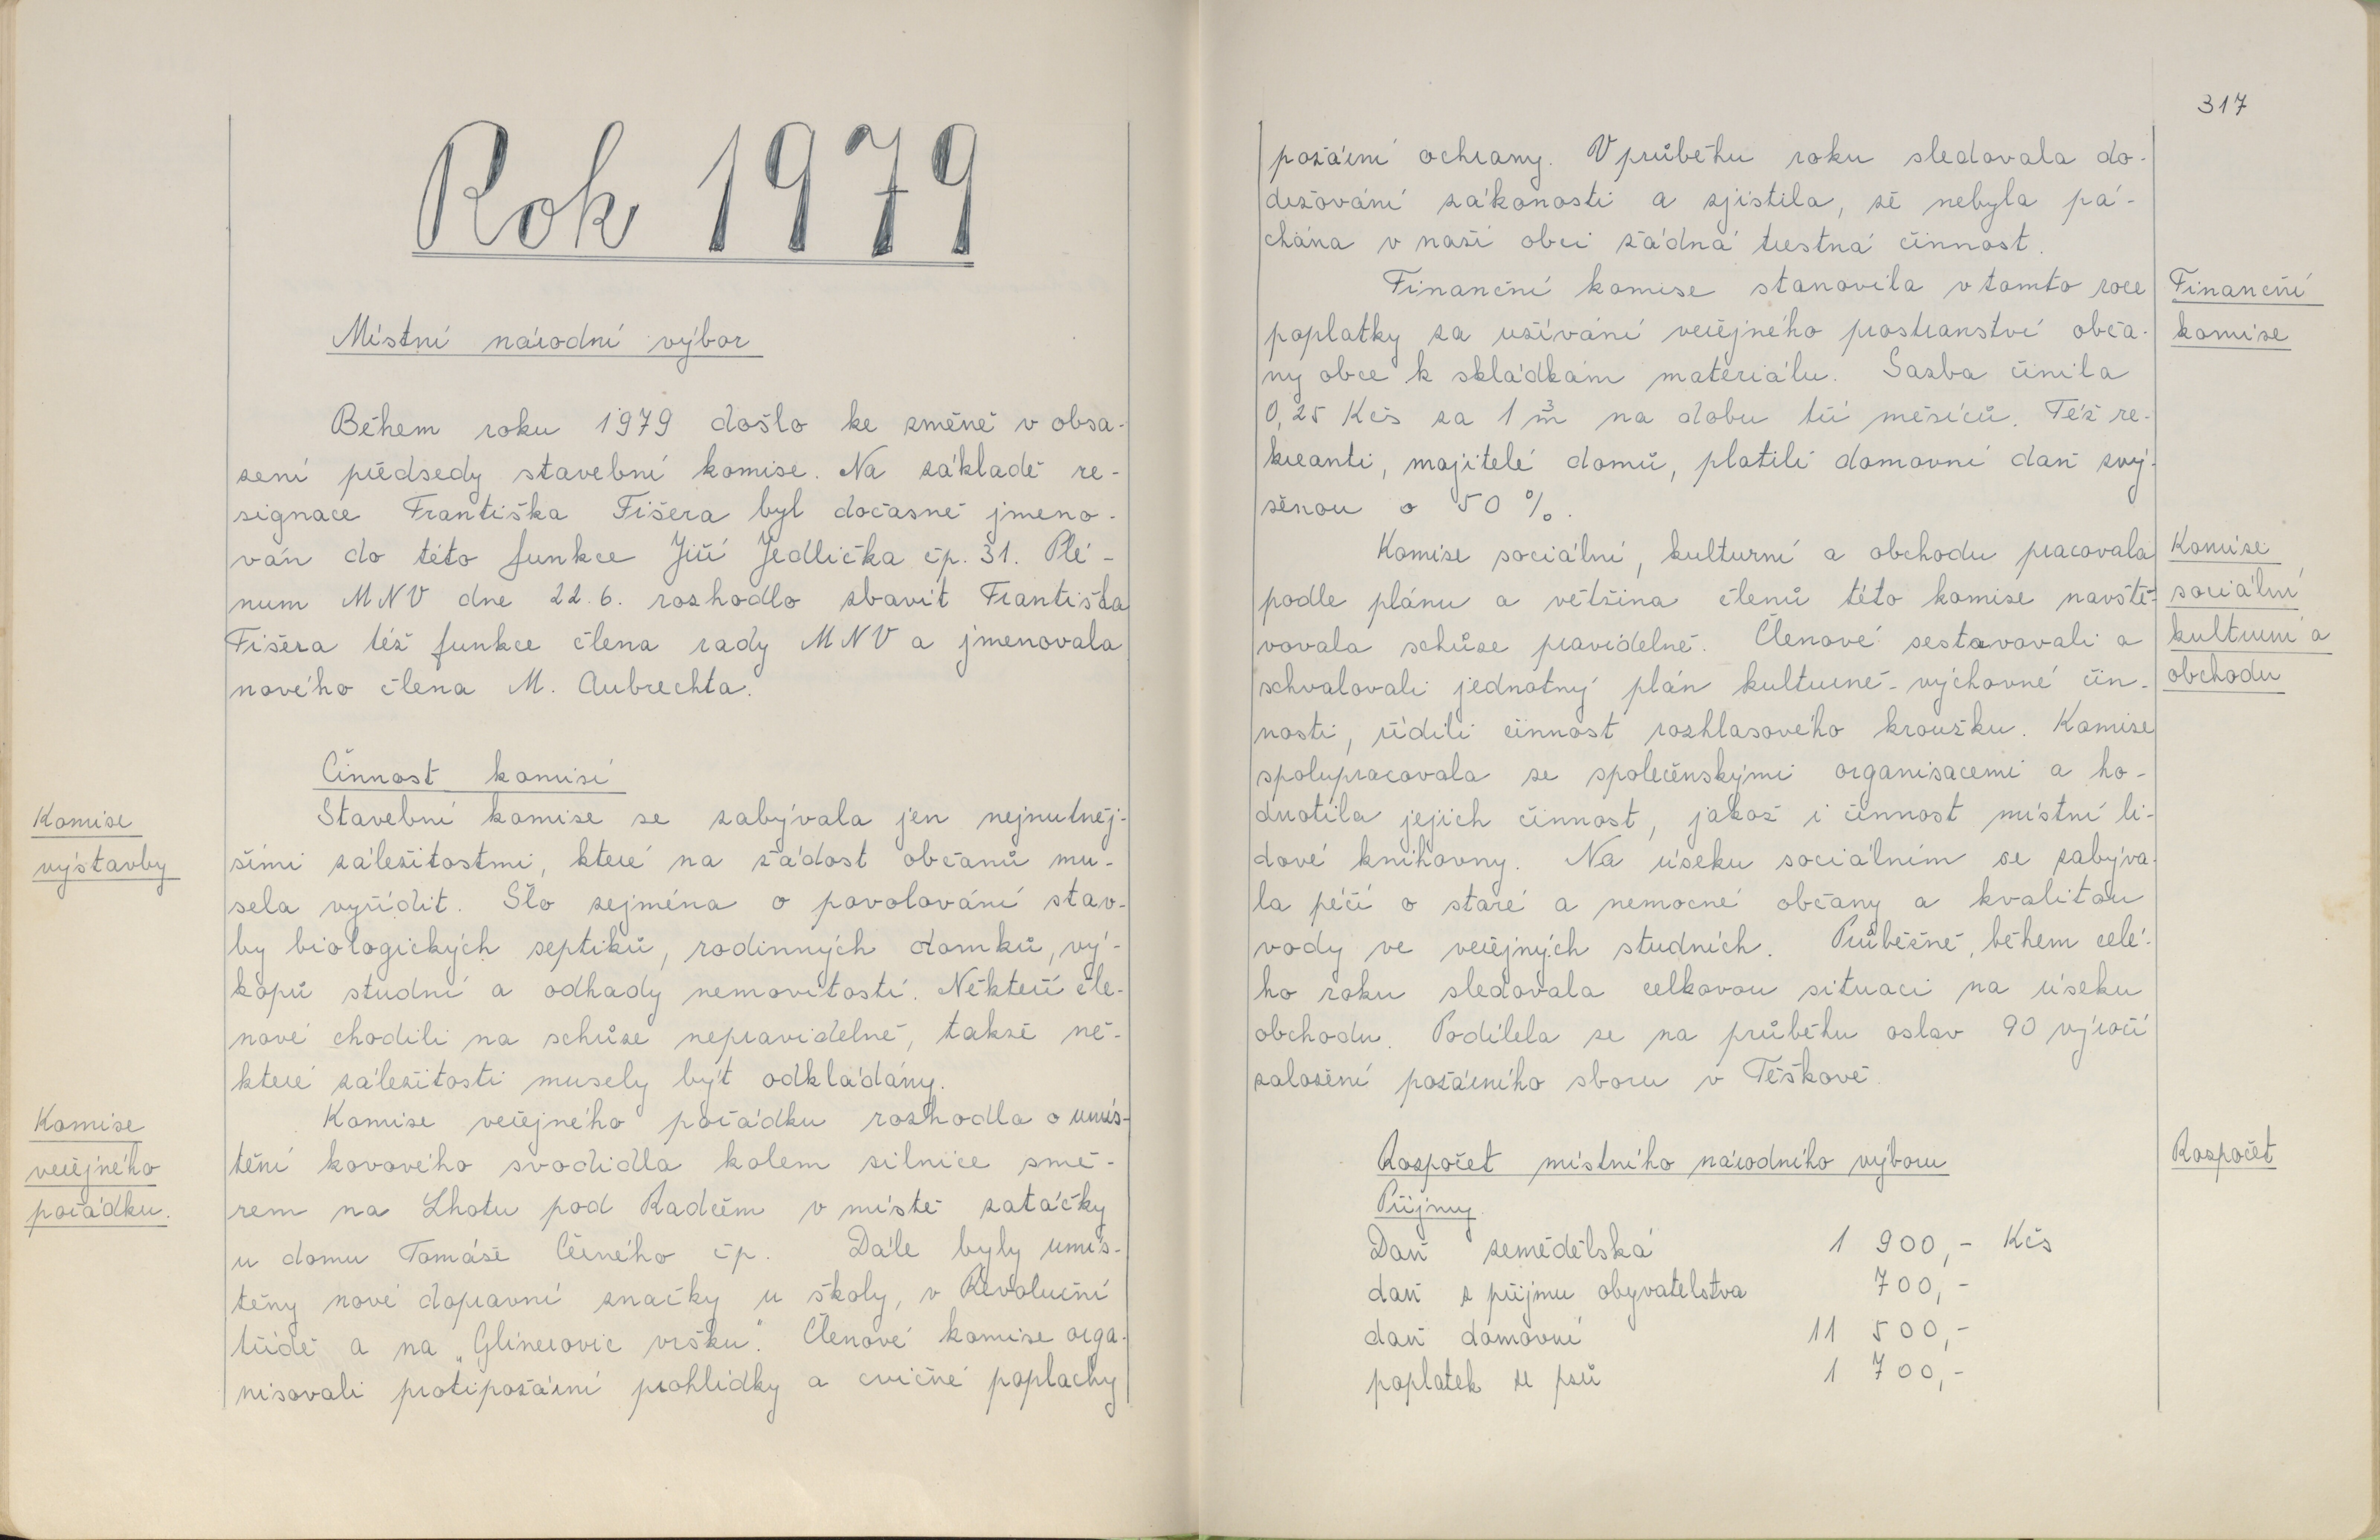 Rok 1979
Místní národní výbor
Během roku 1979 došlo ke změně v obsa-
zení předsedy stavební komise. Na základě re-
signace Františka Fišera byl dočasně jmeno-
ván do této funkce Jiří Jedlička čp. 31. Plé-
num MNV dne 22.6. rozhodlo zbavit Františka
Fišera též funkce člena rady MNV a jmenovala
nového člena M. Aubrechta.
Činnost komisí
Komise
výstavby
Stavební komise se zabývala jen nejnutněj-
šími záležitostmi, které na žádost občanů mu-
sela vyřídit. Šlo zejména o povolování stav-
by biologických septiků, rodinných domků, vý-
kopů studní a odhady nemovitostí. Někteří čle-
nové chodili na schůze nepravidelně, takže ně-
které záležitosti musely být odkládány.
Komise
veřejného
pořádku.
Komise veřejného pořádku rozhodla o umís-
tění kovového svodidla kolem silnice smě-
rem na Lhotu pod Radčem v místě zatáčky
u domu Tomáše Černého čp. Dále byly umís-
těny nové dopravní značky u školy, v Revoluční
třídě a na „Glinerovic vršku." Členové komise orga-
nisovali protipožární prohlídky a cvičné poplachy
317
požární ochrany. V průběhu roku sledovala do-
držování zákonosti a zjistila, že nebyla pá-
chána v naší obci žádná trestná činnost.
Finanční
komise
Finanční komise stanovila v tomto roce
poplatky za užívání veřejného prostranství obča-
ny obce k skládkám materiálu. Sazba činila
0,25 Kčs za 1 m³ na dobu tří měsíců. Též re-
kreanti, majitelé domů, platili domovní daň zvý-
šenou o 50 %.
Komise
sociální
kulturní a
obchodu
Komise sociální, kulturní a obchodu pracovala
podle plánu a většina členů této komise navště-
vovala schůze pravidelně. Členové sestavovali a
schvalovali jednotný plán kulturně-výchovné čin-
nosti, řídili činnost rozhlasového kroužku. Komise
spolupracovala se společenskými organisacemi a ho-
dnotila jejich činnost, jakož i činnost místní li-
dové knihovny. Na úseku sociálním se zabýva-
la péčí o staré a nemocné občany a kvalitou
vody ve veřejných studních. Průběžně, během celé-
ho roku sledovala celkovou situaci na úseku
obchodu. Podílela se na průběhu oslav 90 výročí
založení požárního sboru v Těškově.
Rozpočet
Rozpočet místního národního výboru
Příjmy
Daň zemědělská 1 900,- Kčs
daň z příjmu obyvatelstva 700,-
daň domovní 11 500,-
poplatek ze psů 1 700,-